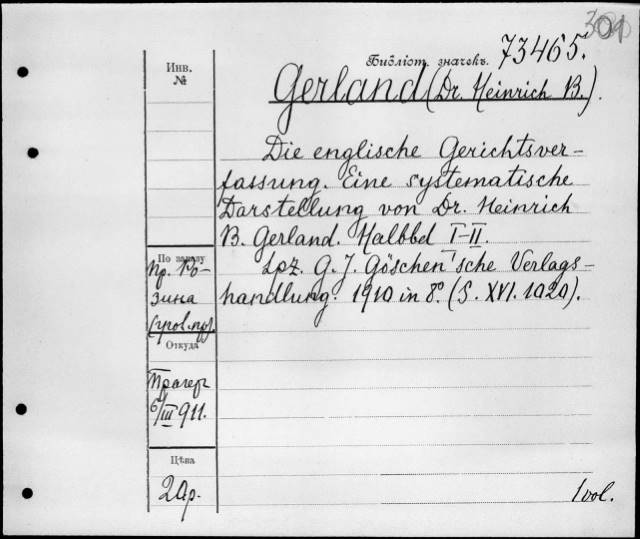 301
Библіот. значекъ. 73465.
Инв.
№
Gerland (Dr. Heinrich B.).
Die englische Gerichtsver-
fassung. Eine systematische
Darstellung von Dr. Heinrich
B. Gerland. Halbbd I-II.
Lpz. G. J. Göschen'sche Verlags-
handlung. 1910 in 8° (S. XVI. 1020).
По заказу
Пр. Ро-
зина
Откуда
Прагеръ
6/III 911.
Цѣна
20р.
1 vol.